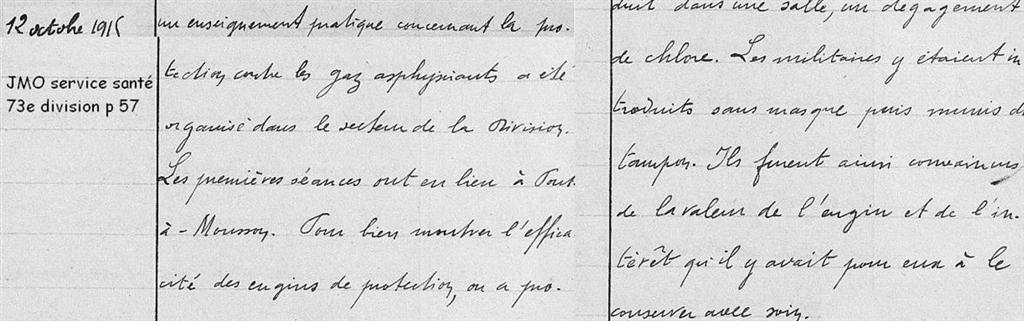 12 octobre 1915
JMO service santé
73e division p 57
un enseignement pratique concernant la pro-
tection contre les gaz asphyxiants a été
organisé dans le secteur de la Division.
Les premières séances ont eu lieu à Pont-
à-Mousson. Pour bien montrer l'effica
cité des engins de protection, on a pro-
duit dans une salle, un dégagement
de chlore. Les militaires y étaient in
troduits sans masque puis munis de
tampon. Ils furent ainsi convaincus
de la valeur de l'engin et de l'in-
térêt qu'il y avait pour eux à le
conserver avec soin.